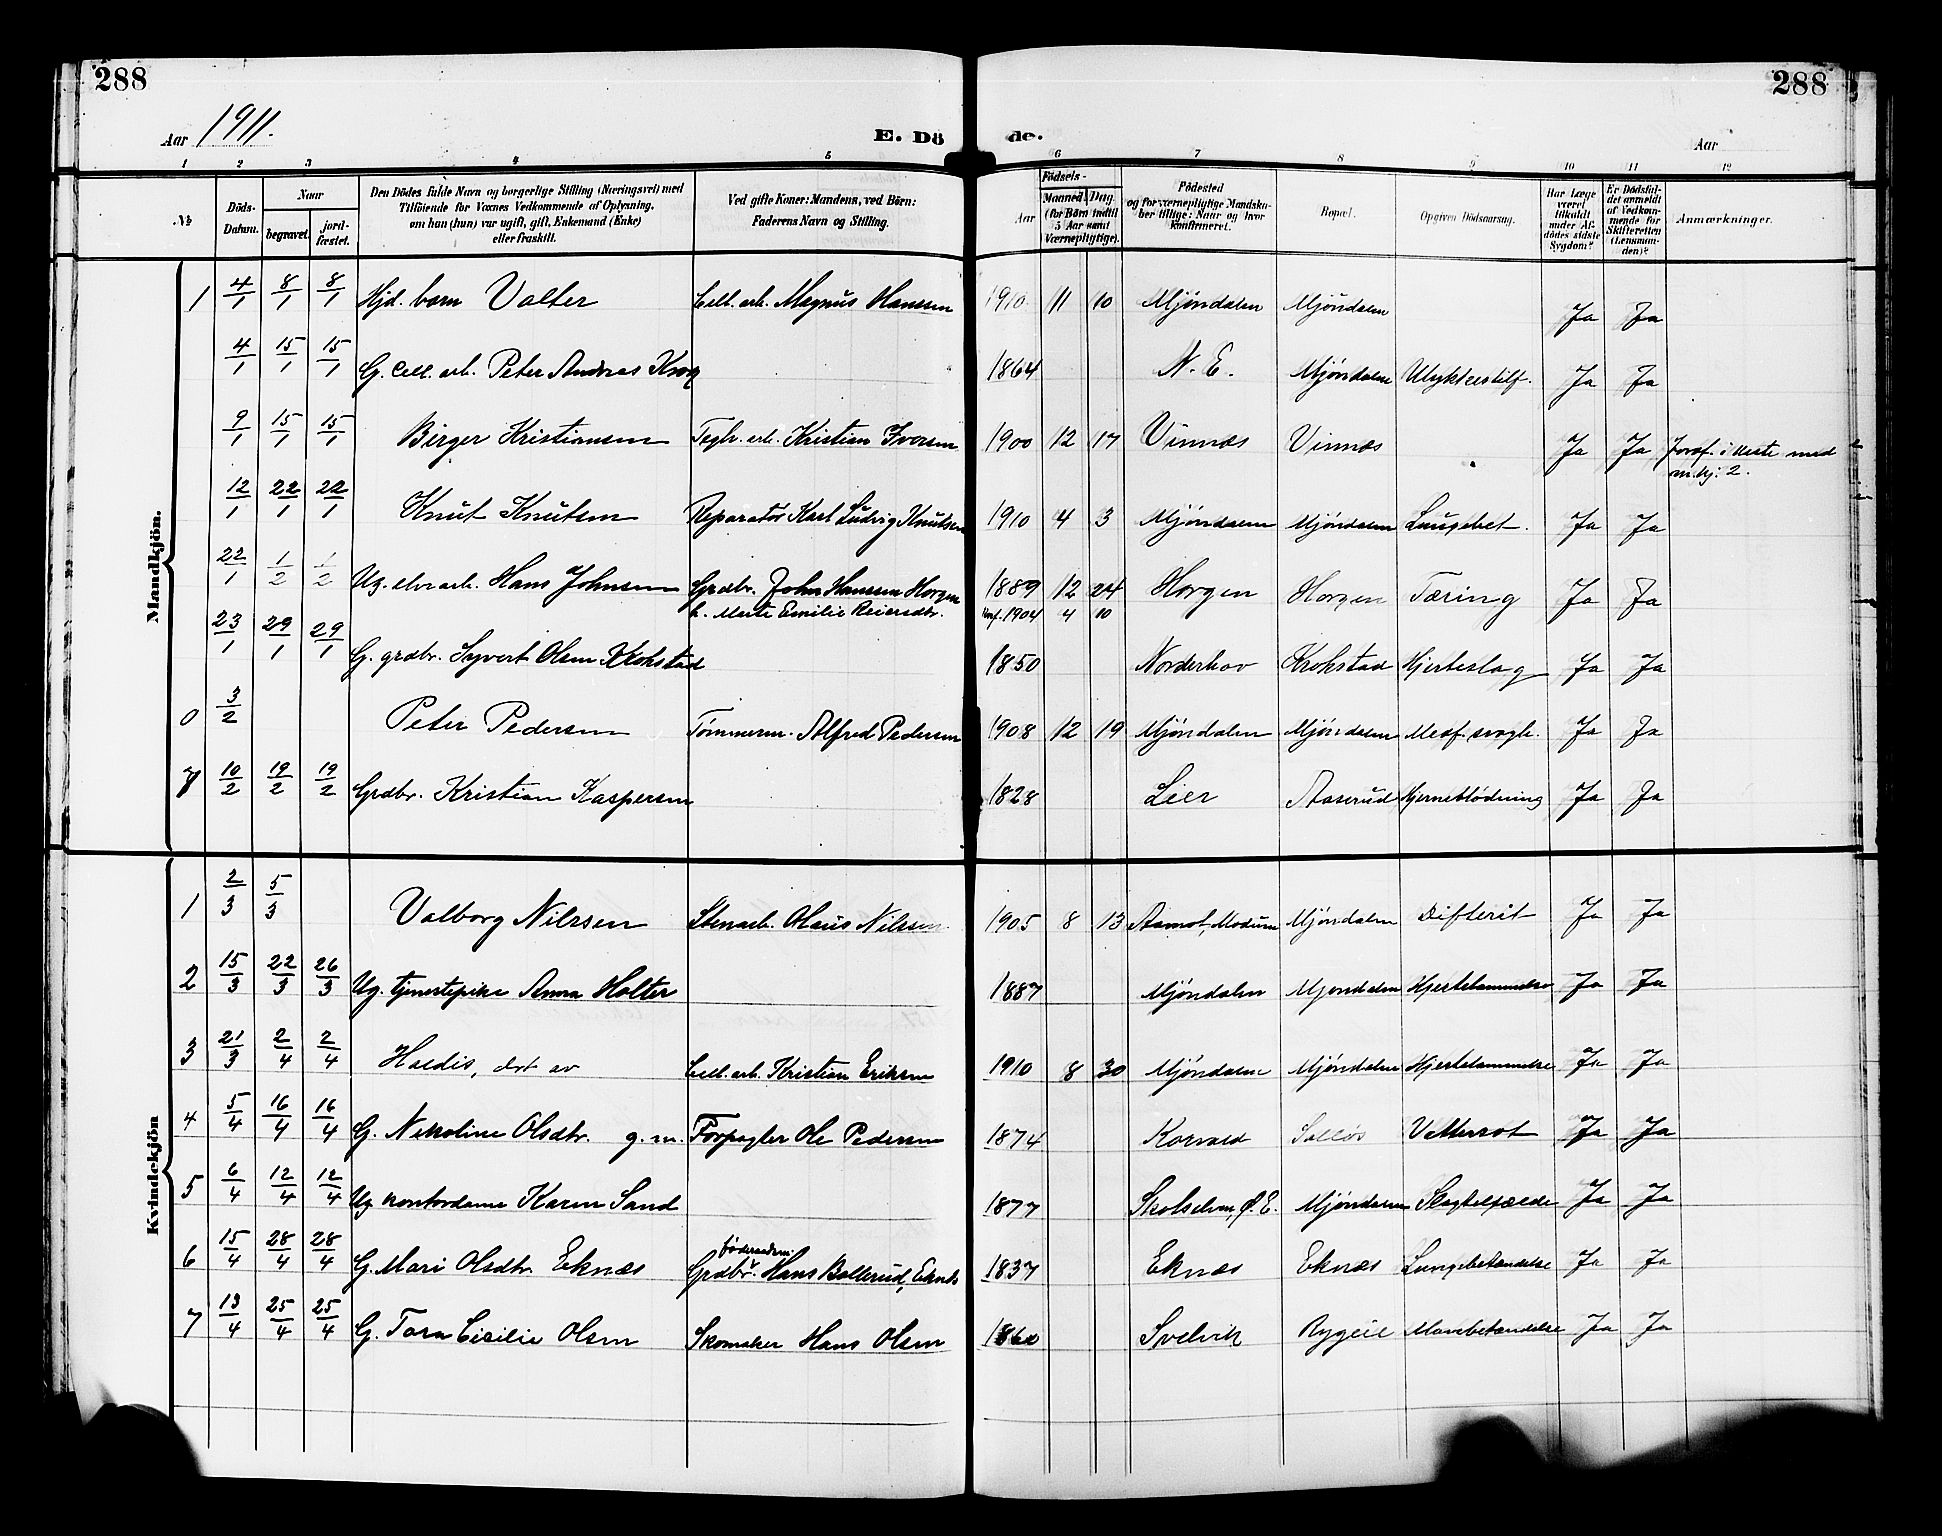 288
288
Aar 1911.
E. Dö
de.
Aar
1 2 3 4 5 6 7 8 9 10 11 12
№
Döds-Datum.
Naar
begravet.
jord-fæstet.
Den Dödes fulde Navn og borgerlige Stilling (Næringsvei) med
Tilföiende for Voxnes Vedkommende af Oplysning,
om han (hun) var ugift, gift, Enkemand (Enke)
eller fraskilt.
Ved gifte Koner: Mandens, ved Börn:
Faderens Navn og Stilling.
Födsels-
Aar
Maaned. Dag
(for Börn indtil
5 Aar samt
Værnepligtige).
Födested
og for værnepligtige Mandska-
ber tillige: Naar og hvor
konfirmeret.
Bopæl.
Opgiven Dödsaarsag.
Har Læge
været
tilkaldt
under Af-
dödes sidste
Sygdom?
Er Dödsfal-
det anmeldt
af Vedkom-
mende for
Skifteretten
(Lensman-
den)?
Anmærkninger.
Mandkjön.
1 4/1 8/1 8/1 Hjd. barn Valter Cell. arb. Magnus Hanssen 1910 11 10 Mjöndalen Mjöndalen Ja Ja
4/1 15/1 15/1 G. Cell. arb. Peter Andreas Krog 1864 N. E. Mjöndalen Ulykkestilf. Ja Ja
9/1 15/1 15/1 Birger Kristiansen Teglv. arb. Kristian Iversen 1900 12 17 Vinnæs Vinnæs Ja Ja
12/1 22/1 22/1 Knut Knutsen Reparatör Karl Ludvig Knutsen 1910 4 3 Mjöndalen Mjöndalen Lungebet. Ja Ja
22/1 1/2 1/2 Ug. elvearb. Hans Johnsen Grdbr. John Hanssen Horgen 1889 12 24 Horgen Horgen Tæring Ja Ja
h. Marte Emilie Reiersdtr. Konf. 1904 4 10
23/1 29/1 29/1 G. grdbr. Syvert Olsen Krokstad 1850 Norderhov Krokstad Hjerteslag Ja Ja
0 3/2 Peter Pedersen Tömmerm. Alfred Pedersen 1908 12 19 Mjöndalen Mjöndalen Medf. svagh. Ja Ja
7 10/2 19/2 19/2 Grdbr. Kristian Kaspersen 1828 Lier Aaserud Hjerneblödning Ja Ja
Kvindekjön
1 2/3 5/3 Valborg Nilssen Stenarb. Olaus Nilssen 1905 8 13 Aamot, Modum Mjöndalen Difterit Ja Ja
2 15/3 22/3 26/3 Ug. tjenestepike Anna Holter 1887 Mjöndalen Mjöndalen Hjertelammelse Ja Ja
3 21/3 2/4 2/4 Haldis, dtr av Cell. arb. Kristian Eriksen 1910 8 30 Mjöndalen Mjöndalen Hjertelammelse Ja Ja
4 5/4 16/4 16/4 G. Nikoline Olsdtr. g. m. Forpagter Ole Pedersen 1874 Korvald Solløs Vattersot Ja Ja
5 6/4 12/4 12/4 Ug. kontordame Karen Sand 1877 Skotselven, Ø. E. Mjöndalen Ja Ja
föderaadsm.
6 15/4 28/4 28/4 G. Mari Olsdtr. Eknæs Grdbr. Hans Bollerud, Eknæs 1837 Eknæs Eknæs Lungebetændelse Ja Ja
7 13/4 25/4 25/4 G. Tora Cicilie Olsen Skomaker Hans Olsen 1860 Svelvik Mavebetændelse Ja Ja